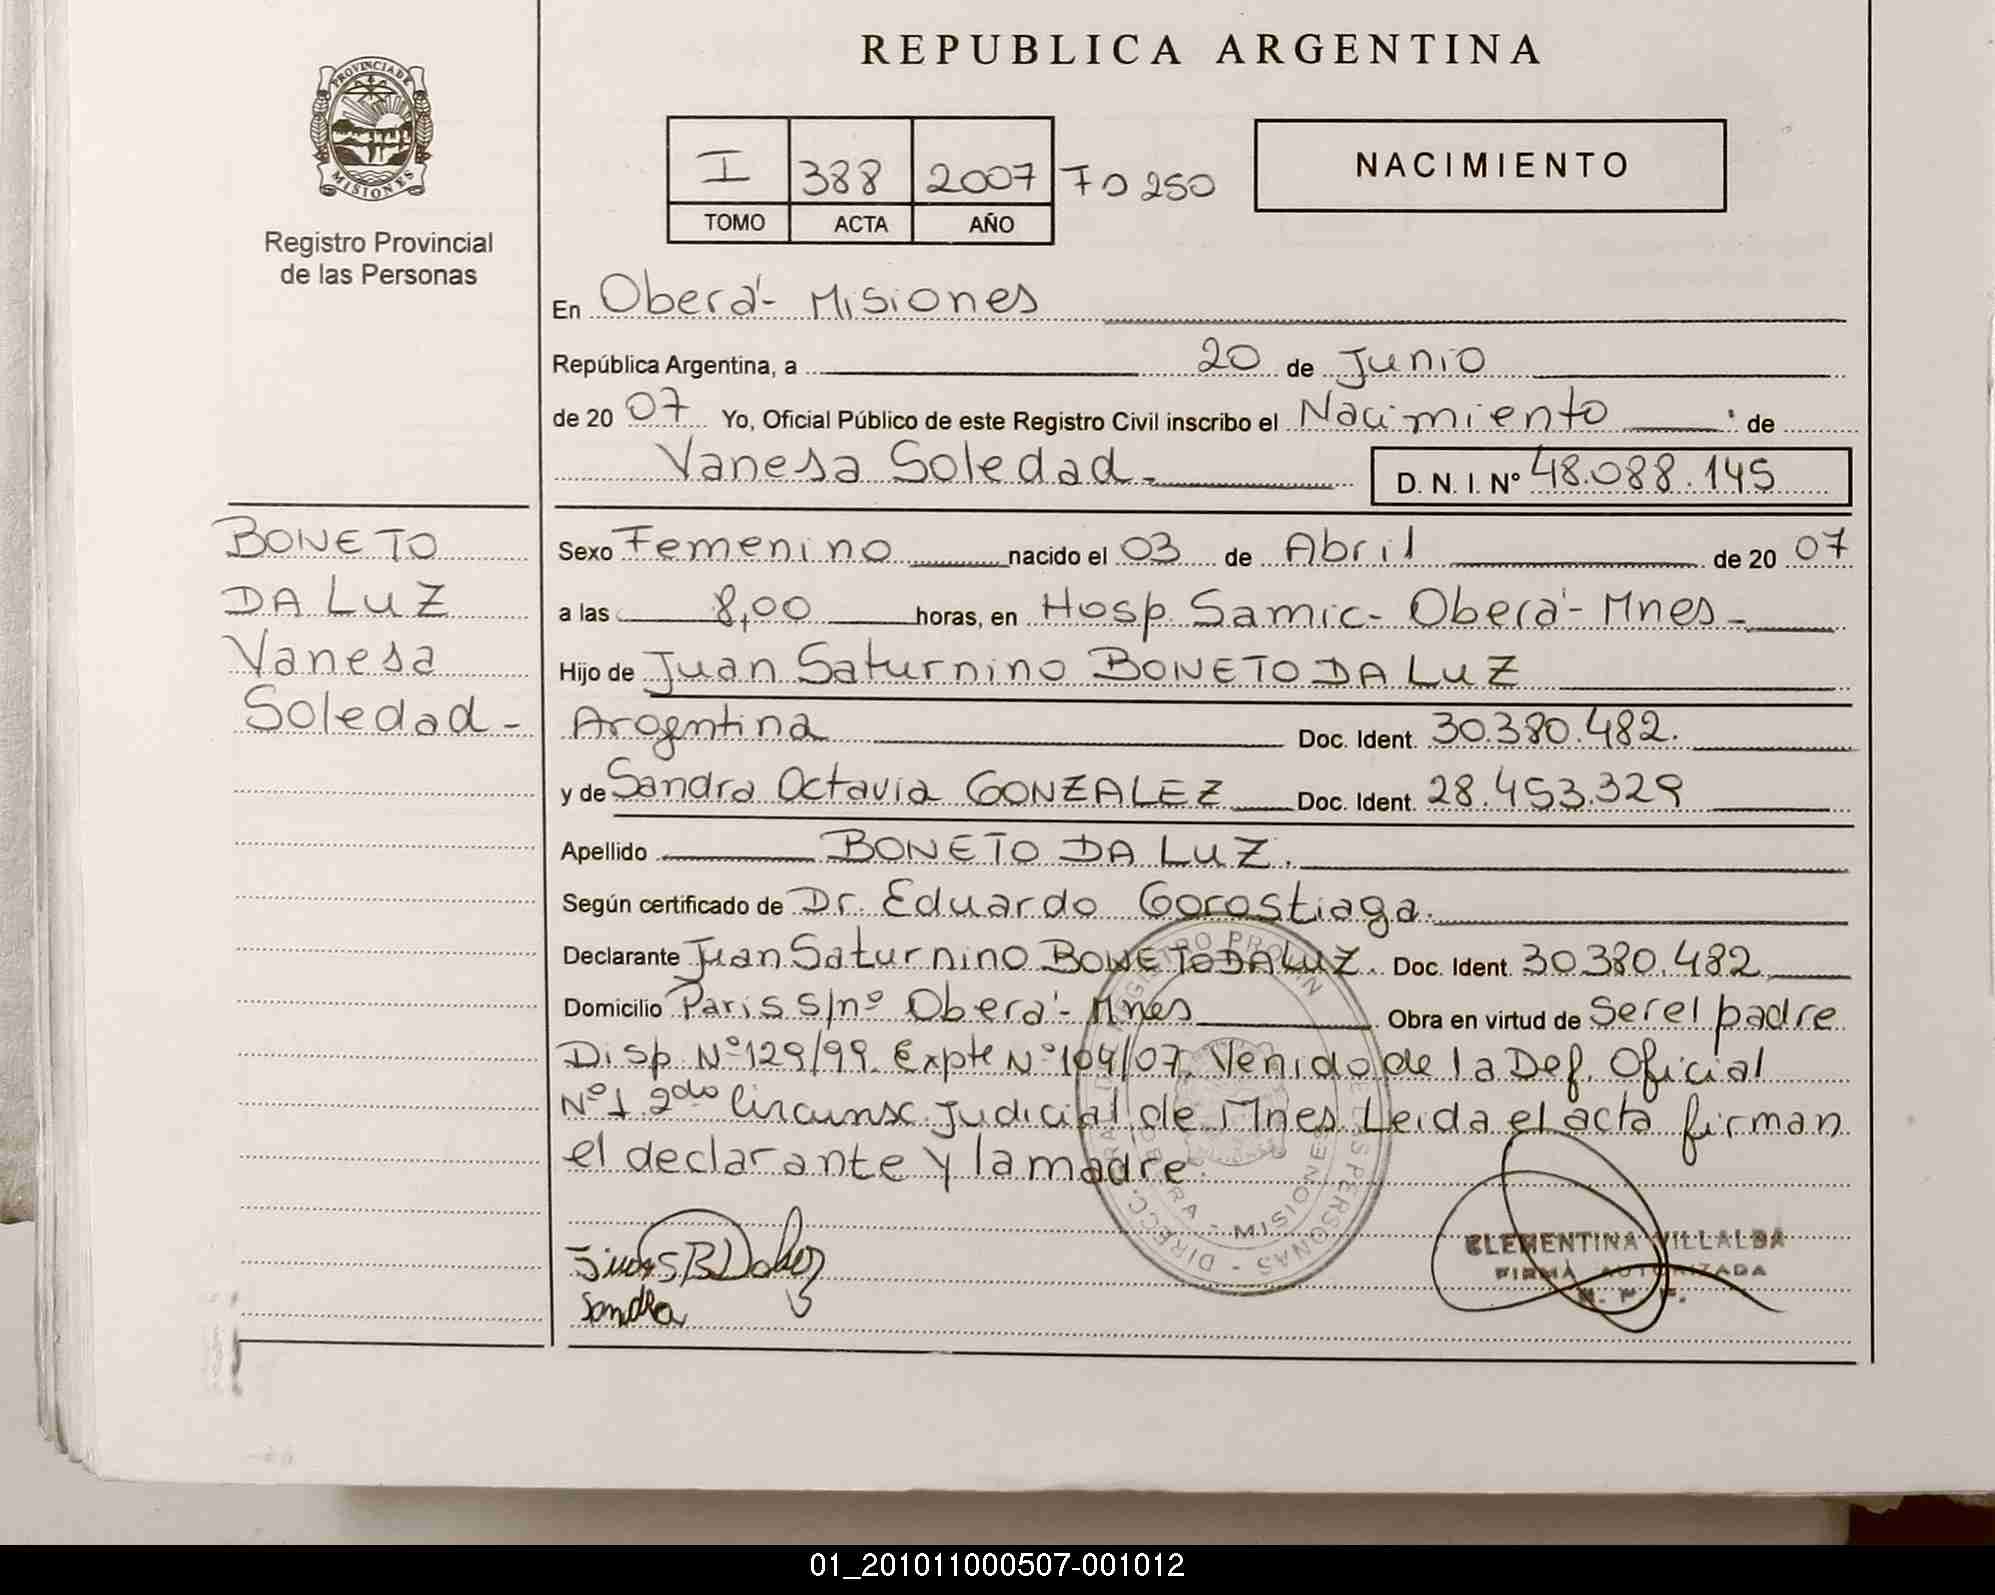 REPUBLICA ARGENTINA
PROVINCIA DE
MISIONES
Registro Provincial
de las Personas
I 388 2007 Fo 250
TOMO ACTA AÑO
NACIMIENTO
En Oberá - Misiones
República Argentina, a 20 de Junio
de 20 07 Yo, Oficial Público de este Registro Civil inscribo el Nacimiento de
Vanesa Soledad.- D. N. I. Nº 48.088.145
BONETO
DA LUZ
Vanesa
Soledad -
Sexo Femenino nacido el 03 de Abril de 20 07
a las 8,00 horas, en Hosp. Samic - Oberá - Mnes -
Hijo de Juan Saturnino BONETO DA LUZ
Argentina Doc. Ident. 30.380.482.
y de Sandra Octavia GONZALEZ Doc. Ident. 28.453.329
Apellido BONETO DA LUZ.
Según certificado de Dr. Eduardo Gorostiaga.
Declarante Juan Saturnino BONETO DA LUZ. Doc. Ident. 30.380.482
Domicilio Paris s/nº Oberá - Mnes Obra en virtud de Ser el padre
Disp. Nº 129/99. Expte Nº 104/07. Venido de la Def. Oficial
Nº 1 2do Circunsc. Judicial de Mnes. Leida el acta firman
el declarante y la madre.
Sandra
CLEMENTINA VILLALBA
FIRMA AUTORIZADA
01_201011000507-001012